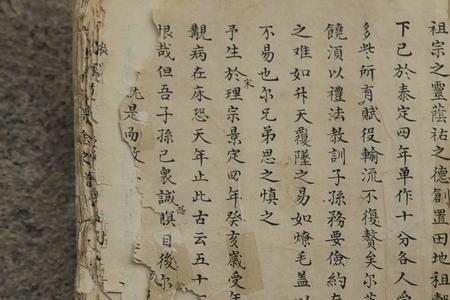 祖宗之靈蔭祐之德創置田地租
下已於泰定四年單作十分各人受
多些所有賦役輪流不復贅矣尔
饒須以禮法教訓子孫務要儉約
之难如升天覆墜之易如燎毛盖
不易也尔兄弟思之慎之
予生於宋理宗景定四年癸亥歲受年
觀病在床恐天年止此古云五十
恨哉但吾子孫已衆誠恐瞑目後尔
是而